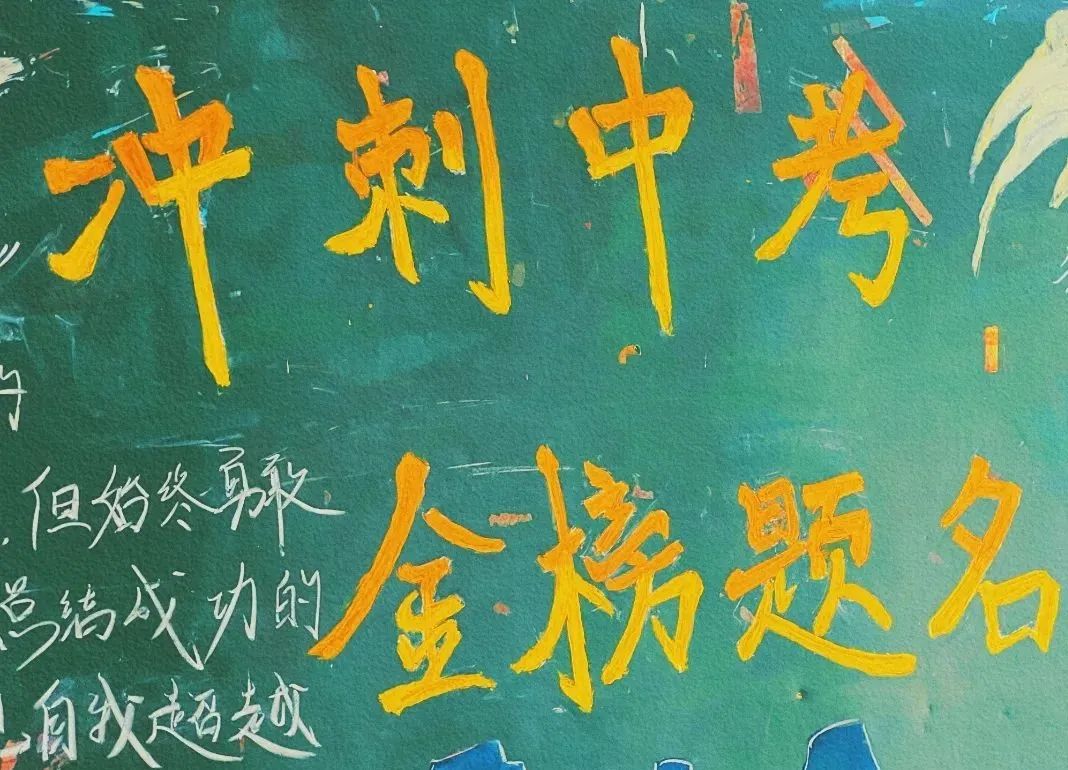 冲刺中考
金榜题名
但始终勇敢
总结成功的
自我超越